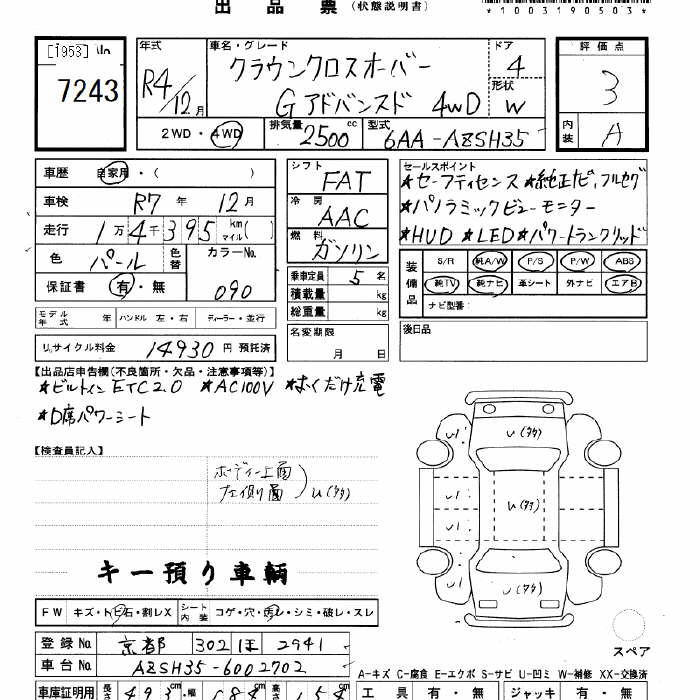 出品票 (状態説明書)
*1003190503*
[1953] No
7243
年式 車名・グレード ドア 評価点
R4/12月 クラウンクロスオーバー 4 3
Gアドバンスド 4WD 形状 W 内装 A
2WD・4WD 排気量 2500 cc 型式 6AA-AZSH35
車歴 自家用・( ) シフト FAT セールスポイント
★セーフティセンス ★純正ナビ、フルセグ
車検 R7年12月 冷房 AAC ★パノラミックビューモニター
走行 1万4千395 km マイル( ) 燃料 ガソリン ★HUD ★LED ★パワートランクリッド
色 パール 色替 カラーNo. 090
保証書 有・無
乗車定員 5名
積載量 kg
総重量 kg
装備品 S/R 純A/W P/S P/W ABS
純TV 純ナビ 革シート 外ナビ エアB
ナビ型番:
モデル年式 年 ハンドル 左・右 ディーラー・並行
名変期限 月 日
後日品
リサイクル料金 14930円 預託済
【出品店申告欄(不良箇所・欠品・注意事項等)】
★ビルトインETC2.0 ★AC100V ★おくだけ充電
★D席パワーシート
【検査員記入】
ボディー上面
左右側面 U(タタ)
U(タタ)
U1 U1
U1 U(タタ) U1
U1 U1
U1 U(タタ) U1
キー預り車輌
FW キズ・トビ石・割レX シート内装 コゲ・穴・汚レ・シミ・破レ・スレ
登録No. 京都 302 ほ 2941
スペア
車台No. AZSH35-6002702
A-キズ C-腐食 E-エクボ S-サビ U-凹ミ W-補修 XX-交換済
車庫証明用 長さ 493cm 幅 184cm 高さ 154cm 工具 有・無 ジャッキ 有・無